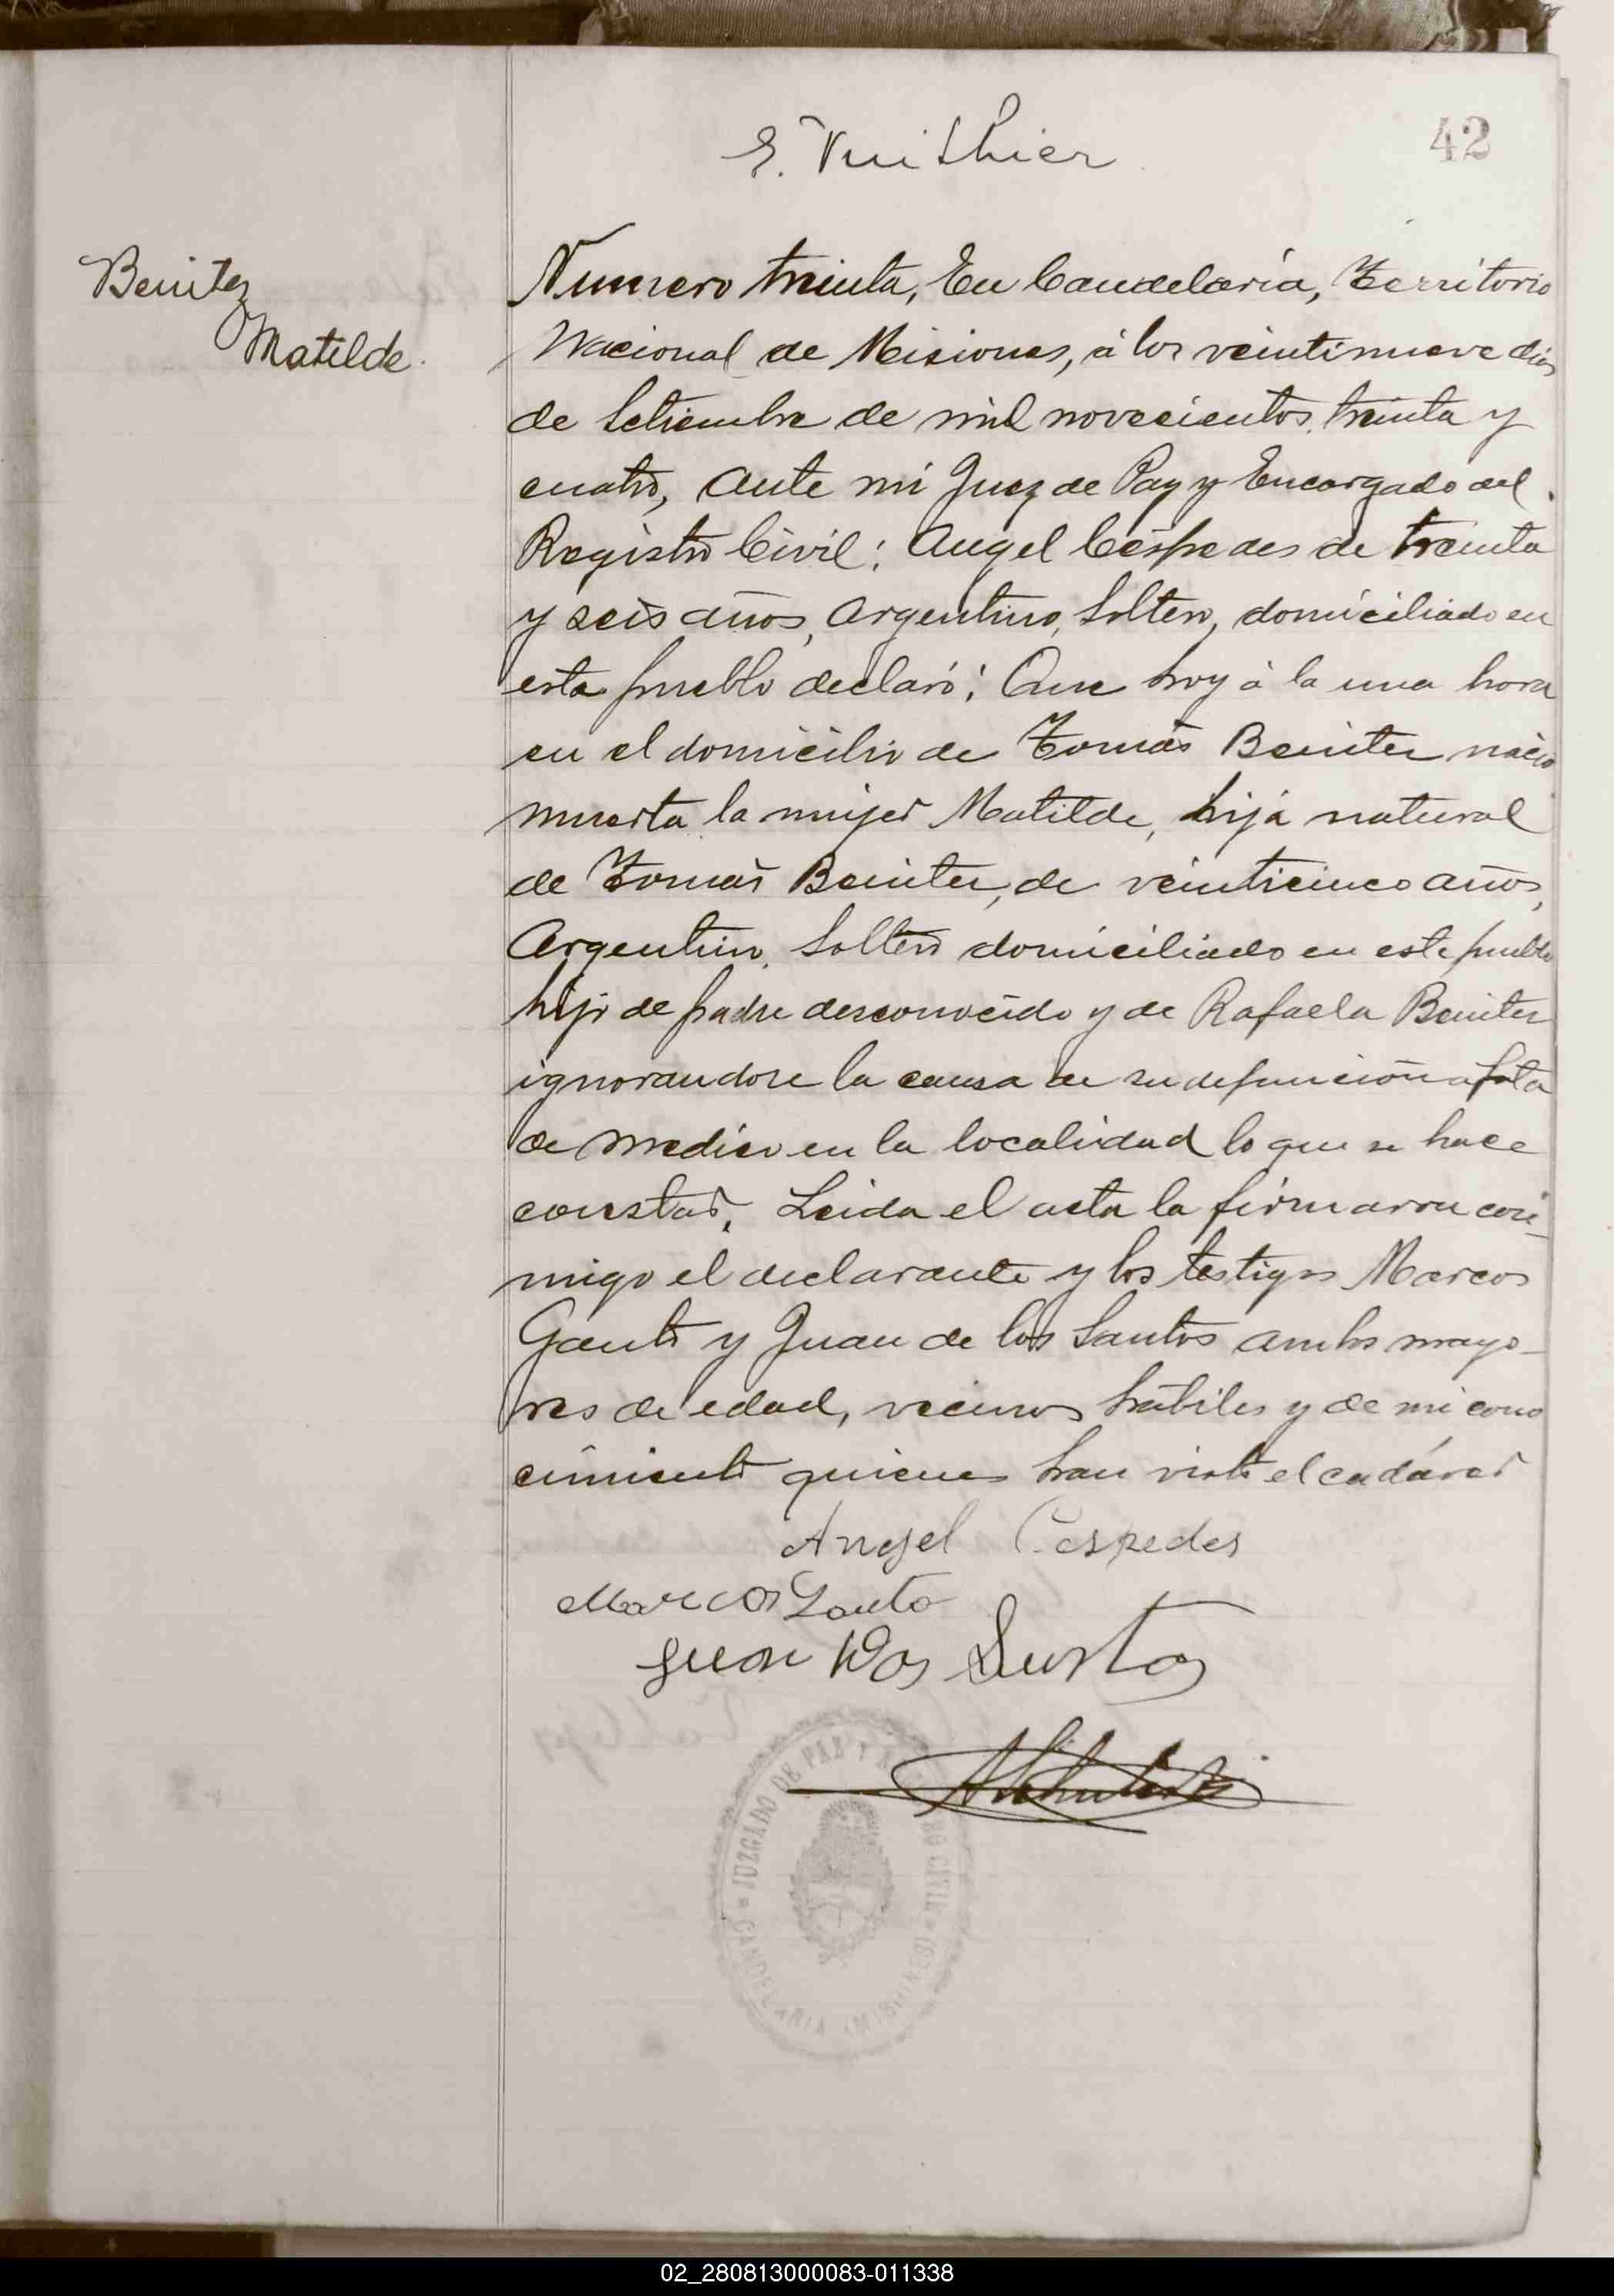 42
E. Vuithier
Benitez
Matilde.
Numero treinta, En Candelaria, Territorio
Nacional de Misiones, á los veintinueve dias
de Setiembre de mil novecientos treinta y
cuatro, Ante mi Juez de Paz y Encargado del
Registro Civil: Angel Céspedes de treinta
y seis años, Argentino, Soltero, domiciliado en
este pueblo declaró: Que hoy á la una hora
en el domicilio de Tomás Benitez nació
muerta la mujer Matilde, hija natural
de Tomás Benitez, de veinticinco años,
Argentino, Soltero domiciliado en este pueblo
hijo de padre desconocido y de Rafaela Benitez
ignorandose la causa de su defunción a falta
de medico en la localidad lo que se hace
constar. Leida el acta la firmaron con-
migo el declarante y los testigos Marcos
Gauto y Juan de los Santos ambos mayo-
res de edad, vecinos hábiles y de mi cono
cimiento quienes han visto el cadáver
Angel Cespedes
Marcos Gauto
Juan Dos Santos
JUZGADO DE PAZ Y REGISTRO CIVIL
CANDELARIA (MISIONES)
02_280813000083-011338